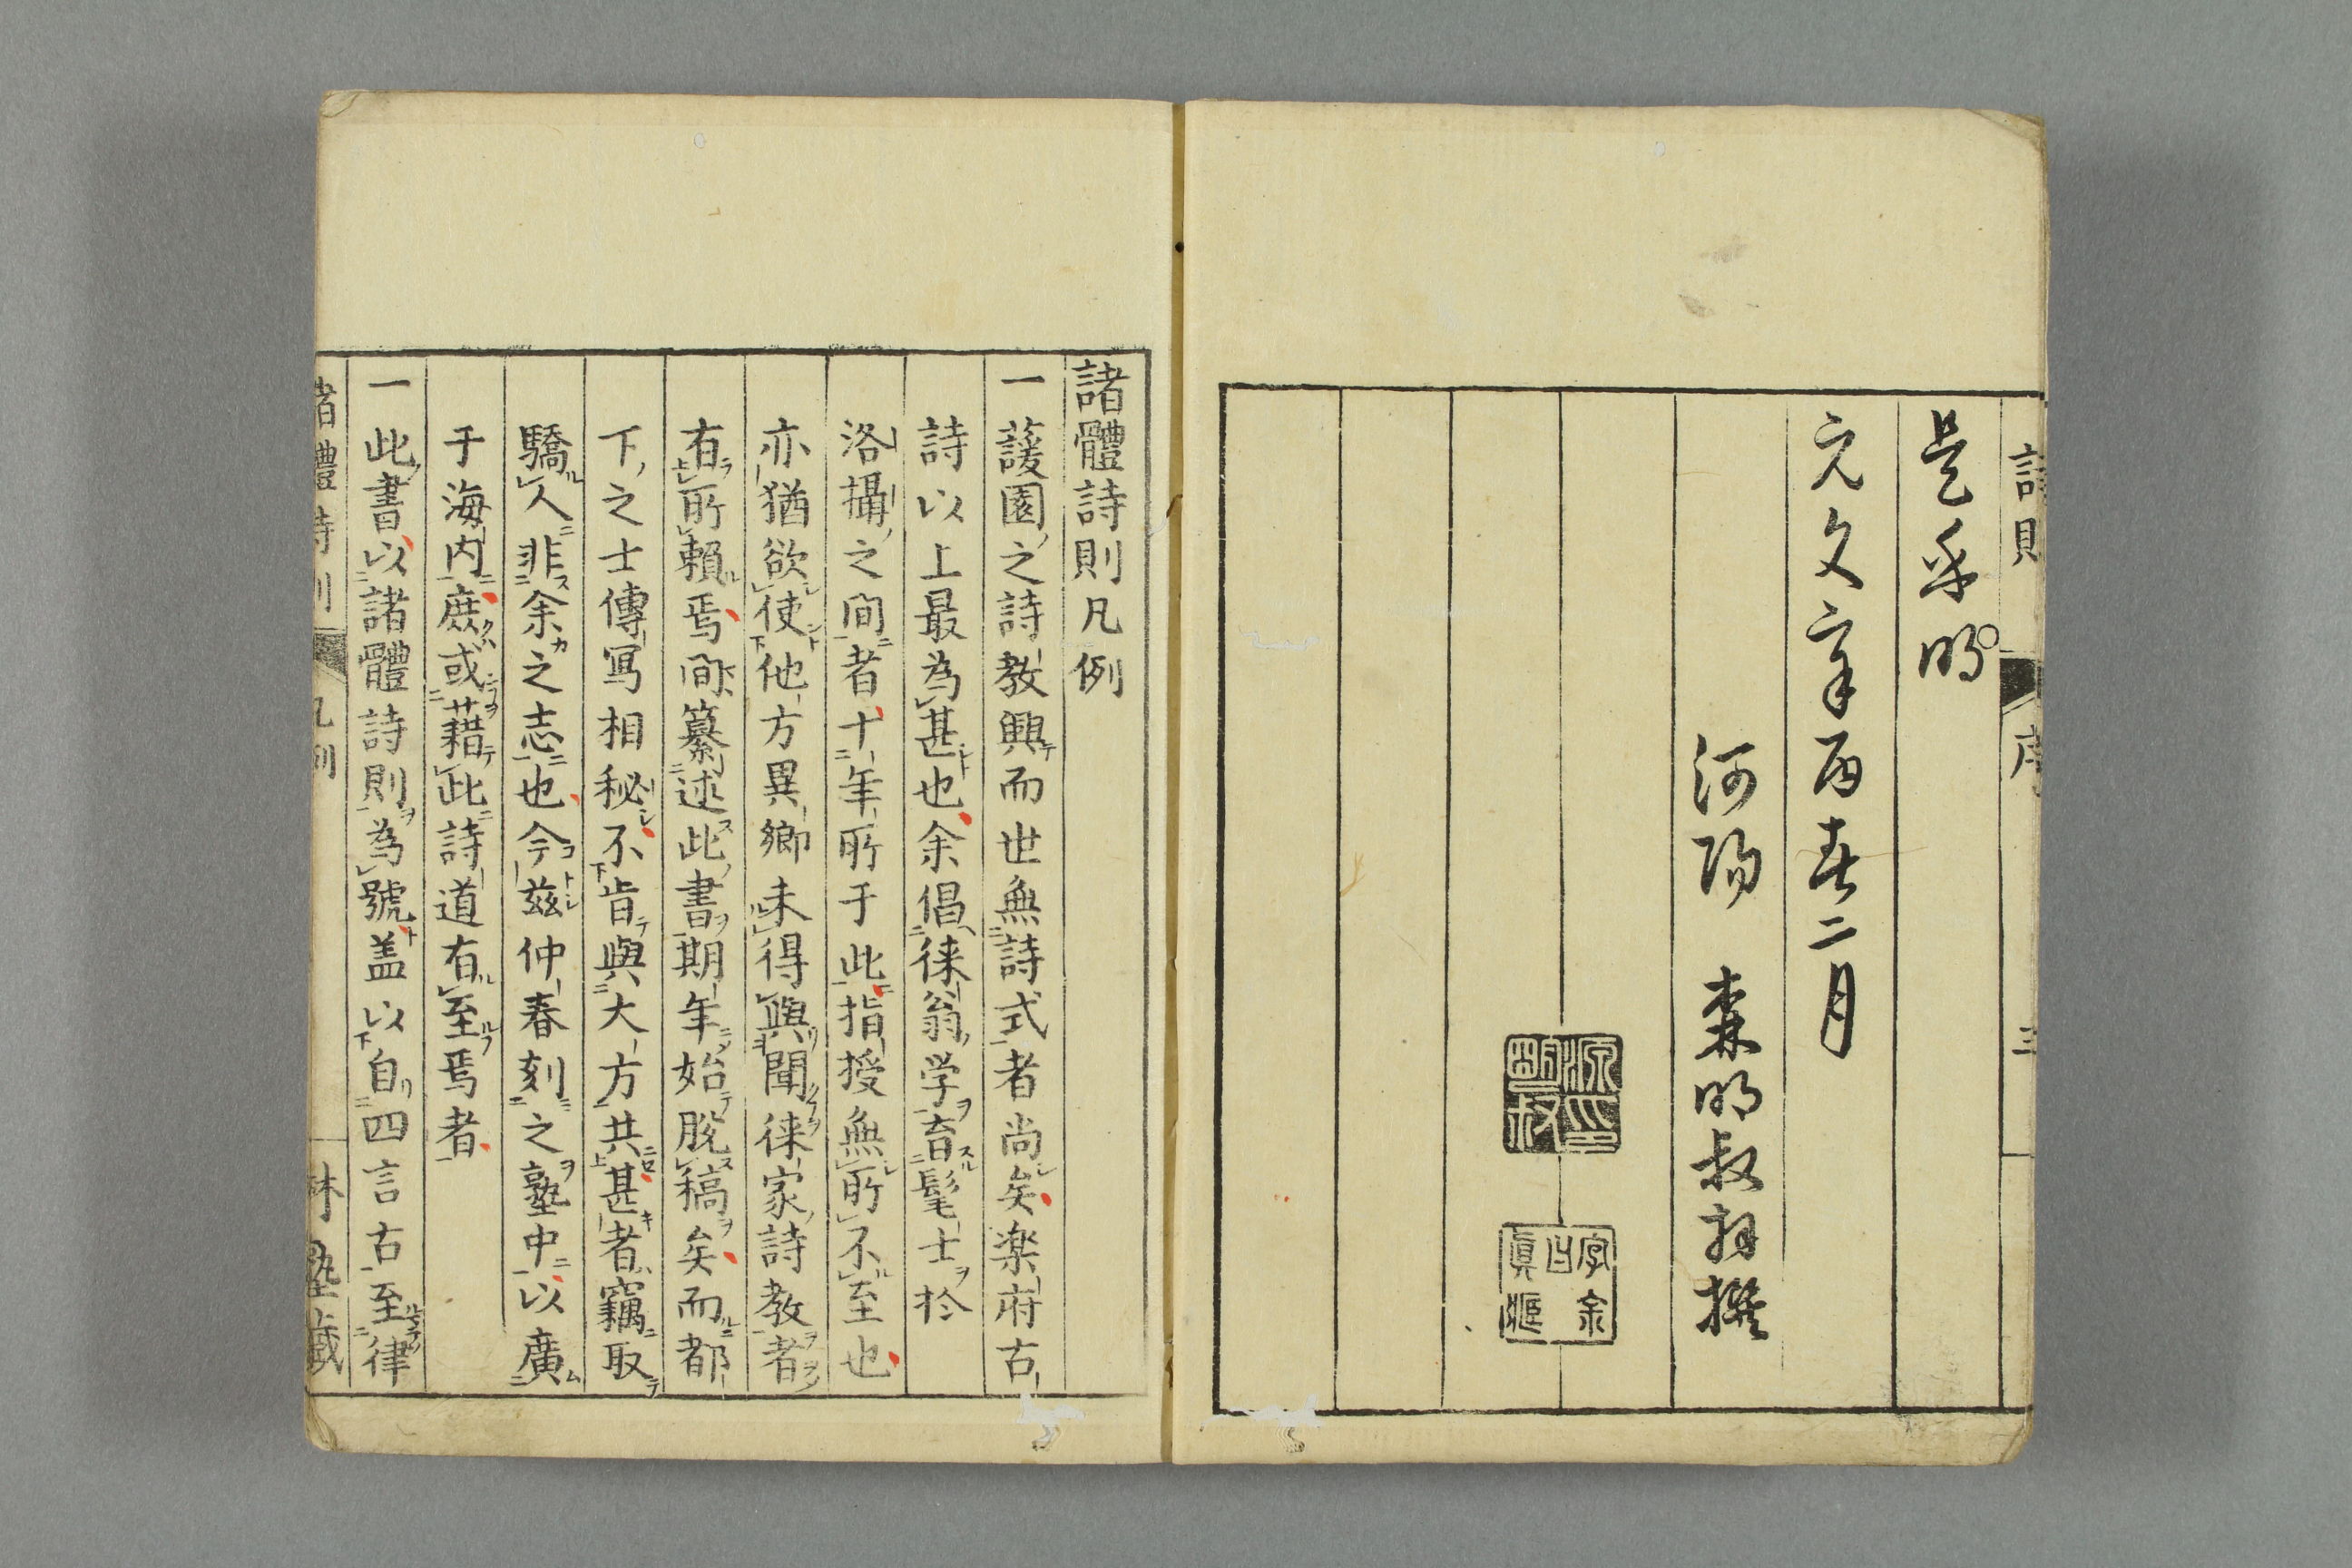 詩則
序
三
是乎明
元文辛酉春二月
河陽 森明叔邦撰
諸體詩則凡例
一 蘐園之詩教興而世無詩式者尚矣楽府古
詩以上最為甚也余倡徠翁学育髦士於
洛攝之間者十年所于此指授無所不至也
亦猶欲使他方異鄉未得與聞徠家詩教者
有所頼焉間纂述此書期年始脫稿矣而都
下之士傳冩相秘不肯與大方共甚者竊取
驕人非余之志也今茲仲春刻之塾中以廣
于海内庻或藉此詩道有至焉者
一 此書以諸體詩則為號盖以自四言古至律
諸體詩則
凡例
林塾蔵